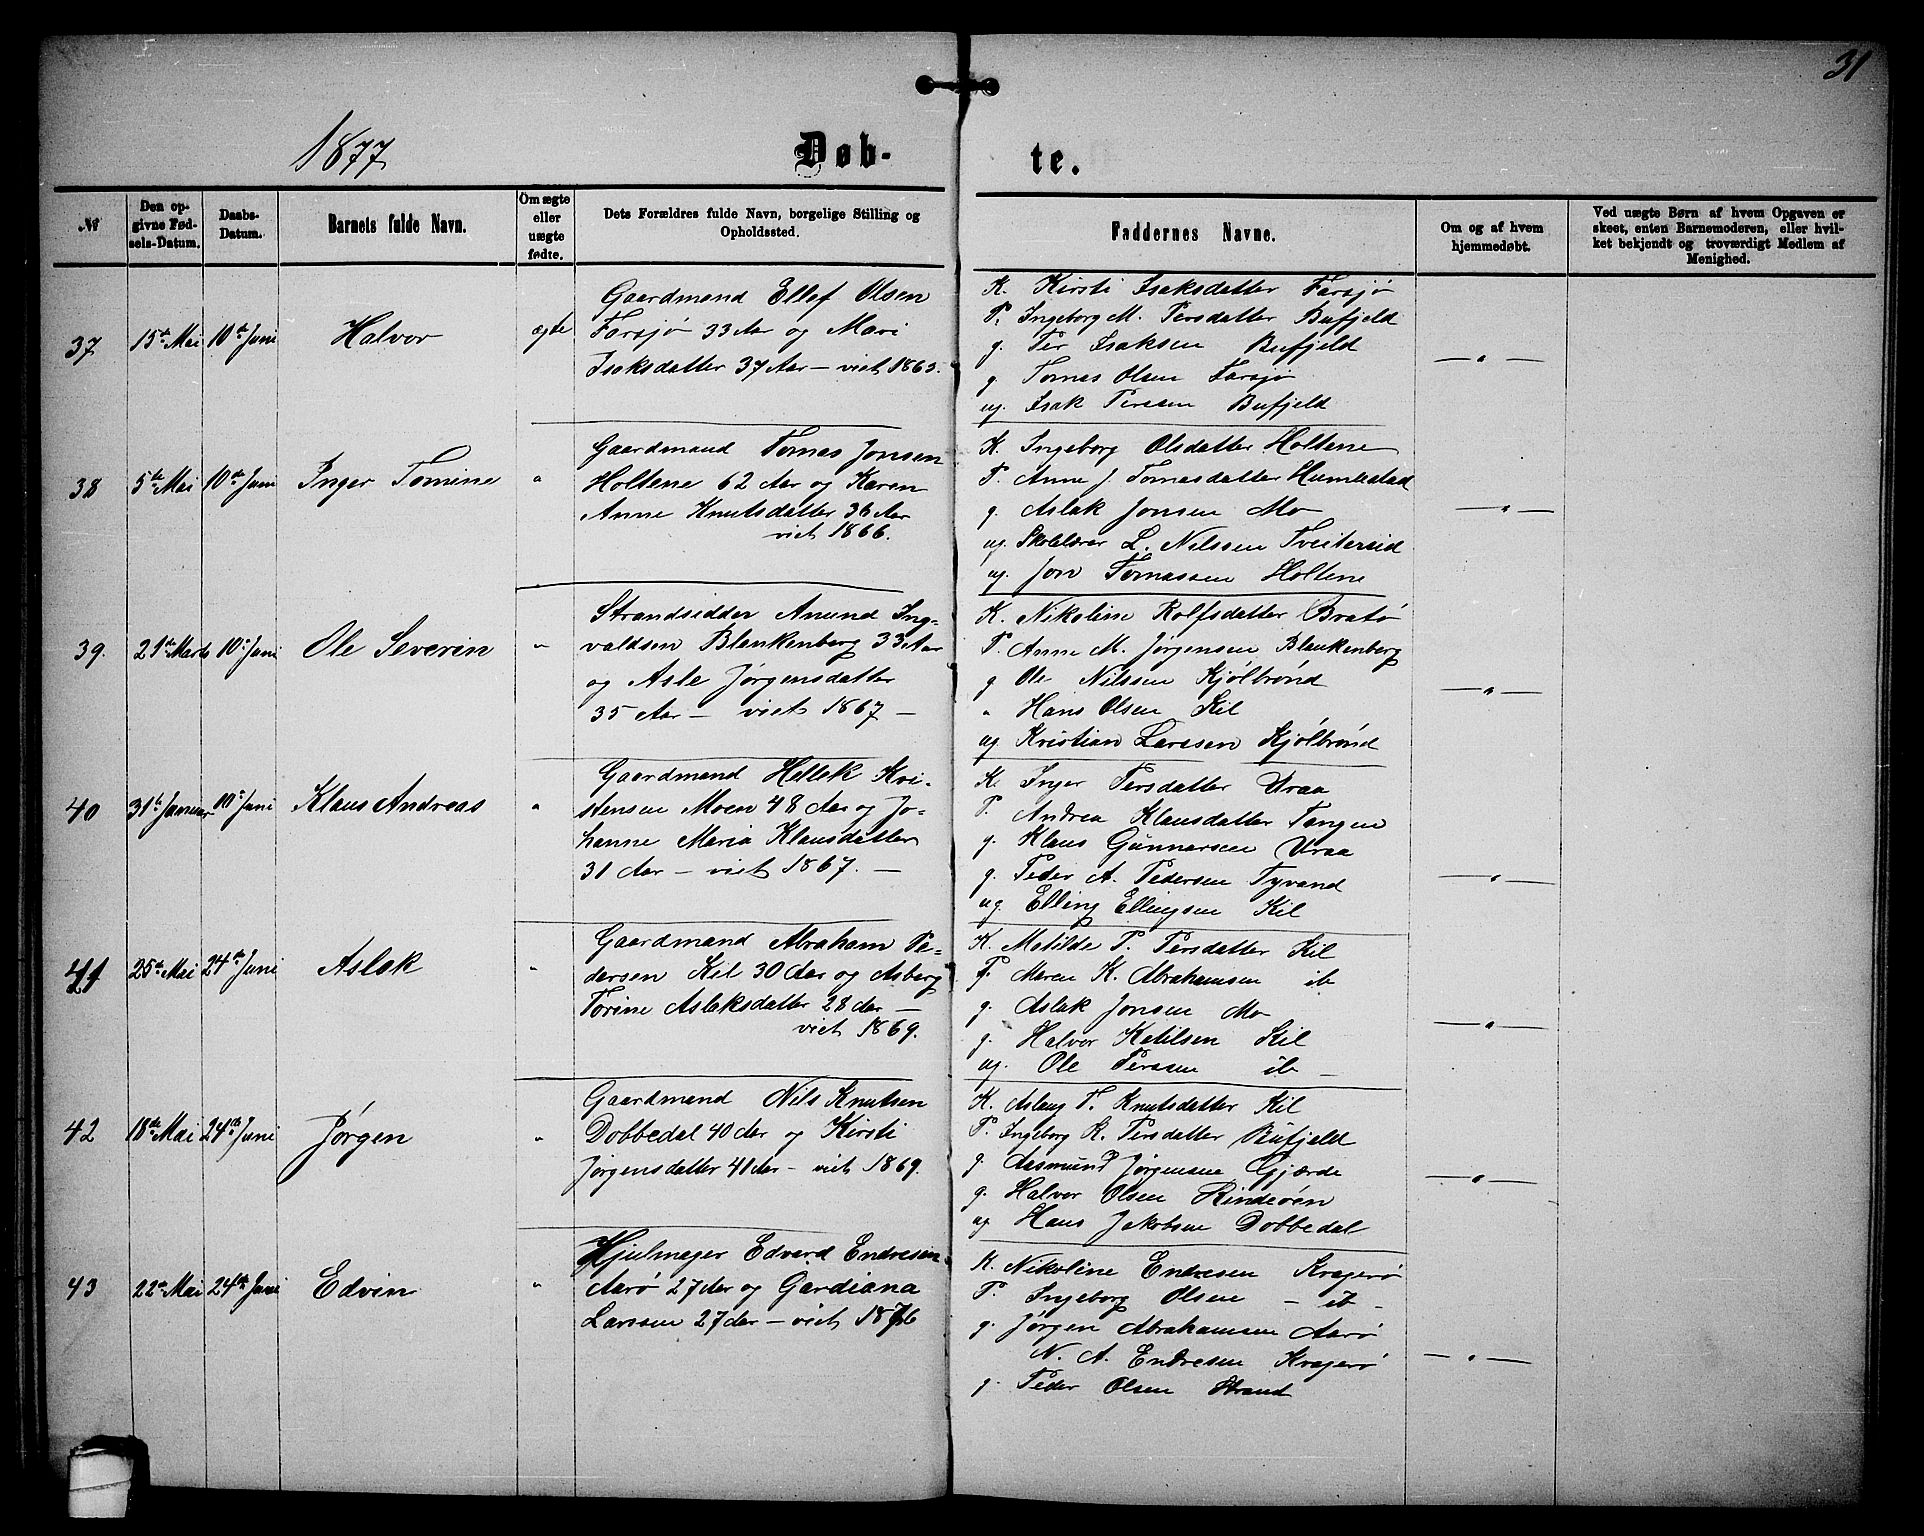 31
1877
Døb-
te.
№
Den op-
givne Fød-
sels-Datum.
Daabs-
Datum.
Barnets fulde Navn.
Om ægte
eller
uægte
fødte.
Dets Forældres fulde Navn, borgelige Stilling og
Opholdssted.
Faddernes Navne.
Om og af hvem
hjemmedøbt.
Ved uægte Børn af hvem Opgaven er
skeet, enten Barnemoderen, eller hvil-
ket bekjendt og troværdigt Medlem af
Menighed.
37
15de Mai
10de Juni
Halvor
ægte
Gaardmand Ellef Olsen
Farsjø 33 Aar og Mari
Isaksdatter 37 Aar — viet 1863.
K. Kirsti Isaksdatter Farsjø
P. Ingeborg M. Persdatter Bufjeld
g. Per Isaksen Bufjeld
g. Tomas Olsen Farsjø
ug. Isak Perssen Bufjeld
— " —
38
5te Mai
10de Juni
Inger Tomine
"
Gaardmand Tomas Jonsen
Holtene 62 Aar og Karen
Anne Knutsdatter 36 Aar
viet 1866.
K. Ingeborg Olsdatter Holtene
P. Anne J. Tomasdatter Humlestad
g. Aslak Jonsen Mo
ug. Skolelærer L. Nilssen Tveitereid
ug. Jon Tomassen Holtene
— " —
39.
21de Marts
10de Juni
Ole Severin
"
Strandsidder Anund Ing-
valdsen Blankenberg 33 Aar
og Asle Jørgensdatter
35 Aar — viet 1867 —
K. Nikoline Rolfsdatter Bratø
P. Anne M. Jørgensen Blankenberg
g Ole Nilssen Kjølbrønd
" Hans Olsen Kil
ug Kristian Larssen Kjølbrønd
— " —
40
31te Januar
10de Juni
Klaus Andreas
"
Gaardmand Hellek Kri-
stensen Moen 48 Aar og Jo-
hanne Maria Klausdatter
31 Aar — viet 1867. —
K. Inger Persdatter Uraa
P. Andrea Klausdatter Tangen
g. Klaus Gunnarsen Uraa
g. Peder A. Pedersen Tyvand
ug. Elling Ellingsen Kil
— " —
41
25de Mai
24de Juni
Aslak
"
Gaardmand Abraham Pe-
dersen Kil 30 Aar og Asberg
Torine Aslaksdatter 28 Aar —
viet 1869.
K. Matilde P. Persdatter Kil
P. Maren K. Abrahamsen ib
g. Aslak Jonsen Mo
g. Halvor Ketilsen Kil
ug. Ole Perssen ib —
— " —
42
18de Mai
24de Juni
Jørgen
"
Gaardmand Nils Knutsen
Dobbedal 40 Aar og Kirsti
Jørgensdatter 41 Aar — viet 1869.
K. Aslaug T. Knutsdatter Kil
P. Ingeborg K. Persdatter Bufjeld
g. Aasmund Jørgensen Gjærde
g. Halvor Olsen
ug Hans Jakobsen Dobbedal
— " —
43
22de Mai
24de Juni
Edvin
"
Hjulmager Edvard Endresen
Aarø 27 Aar og Gardiana
Larssen 27 Aar — viet 1876
K. Nikoline Endresen Kragerø
P. Ingeborg Olsen — ib —
g. Jørgen Abrahamsen Aarø
N. A. Endresen Kragerø
g. Peder Olsen Strand
— " —